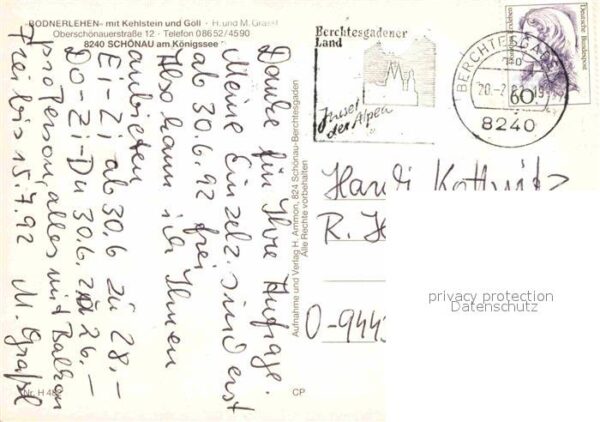 "BODNERLEHEN" mit Kehlstein und Göll · H. und M. Graßl
Oberschönauerstraße 12 · Telefon 08652/4590
8240 SCHÖNAU am Königssee
Danke für Ihre Anfrage.
Meine Einzelz. sind erst
ab 30.6.92 frei
Also kann ich Ihnen
anbieten
Ei-Zi ab 30.6 zu 28.–
Do-Zi-Du 30.6. zu 26.–
pro Person, alles mit Balkon
Frei bis 15.7.92 M. Graßl
Nr. H
Aufnahme und Verlag H. Ammon, 824 Schönau-Berchtesgaden
Alle Rechte vorbehalten
CP
Berchtesgadener
Land
Insel
der Alpen
BERCHTESGADEN
8240
Deutsche Bundespost
60
R.
O-944
privacy protection
Datenschutz